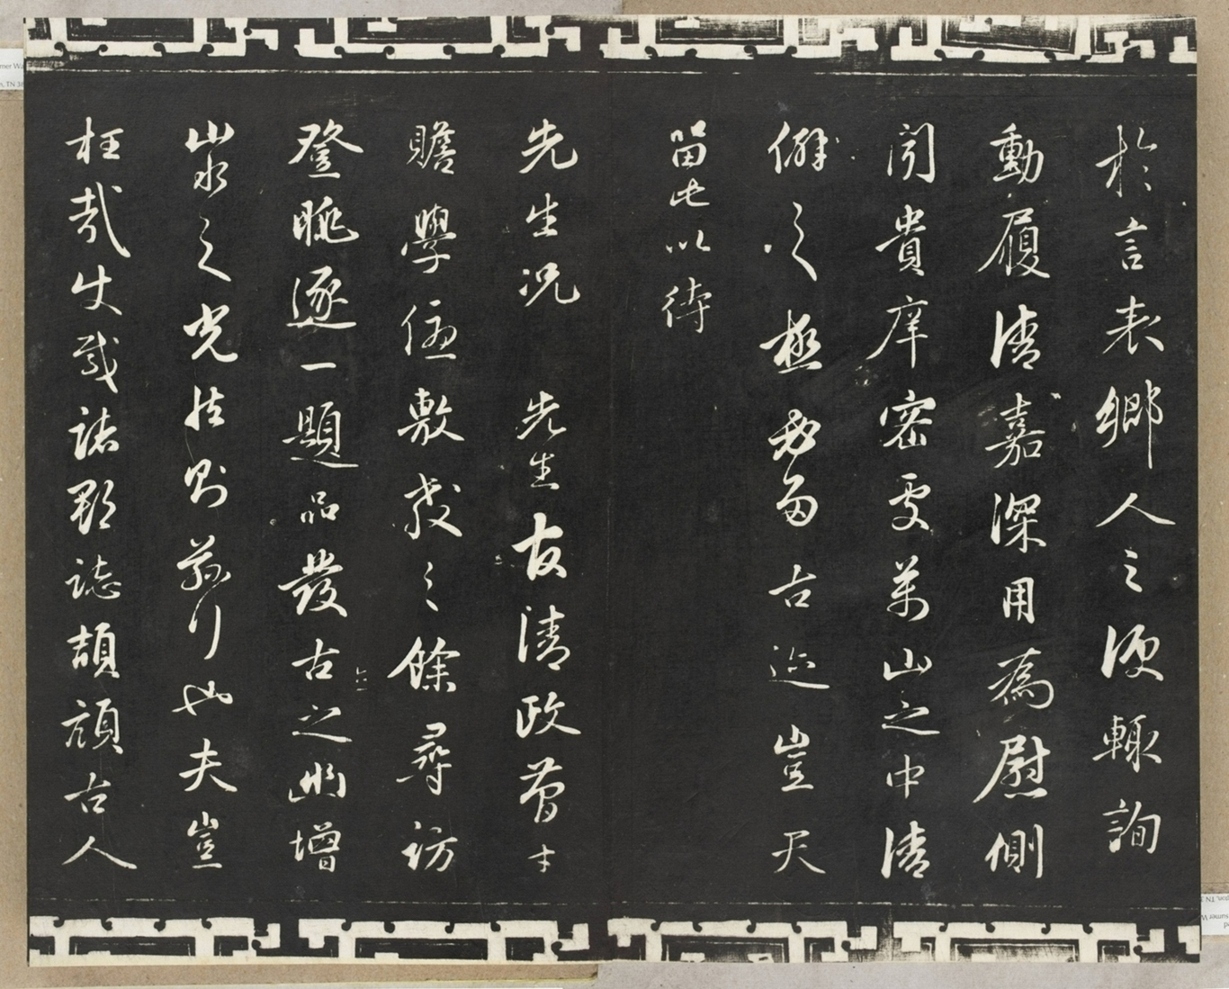 於言表鄉人之便輒詢
動履清嘉深用為慰側
聞貴庠密更萬山之中清
僻之極多古迹豈天
留此以待
先生況 先生友清政
贍學優敷教之餘尋訪
登眺逐一題品發古之幽增
山水之光於也夫豈
枉哉諸郡誌頡頏古人